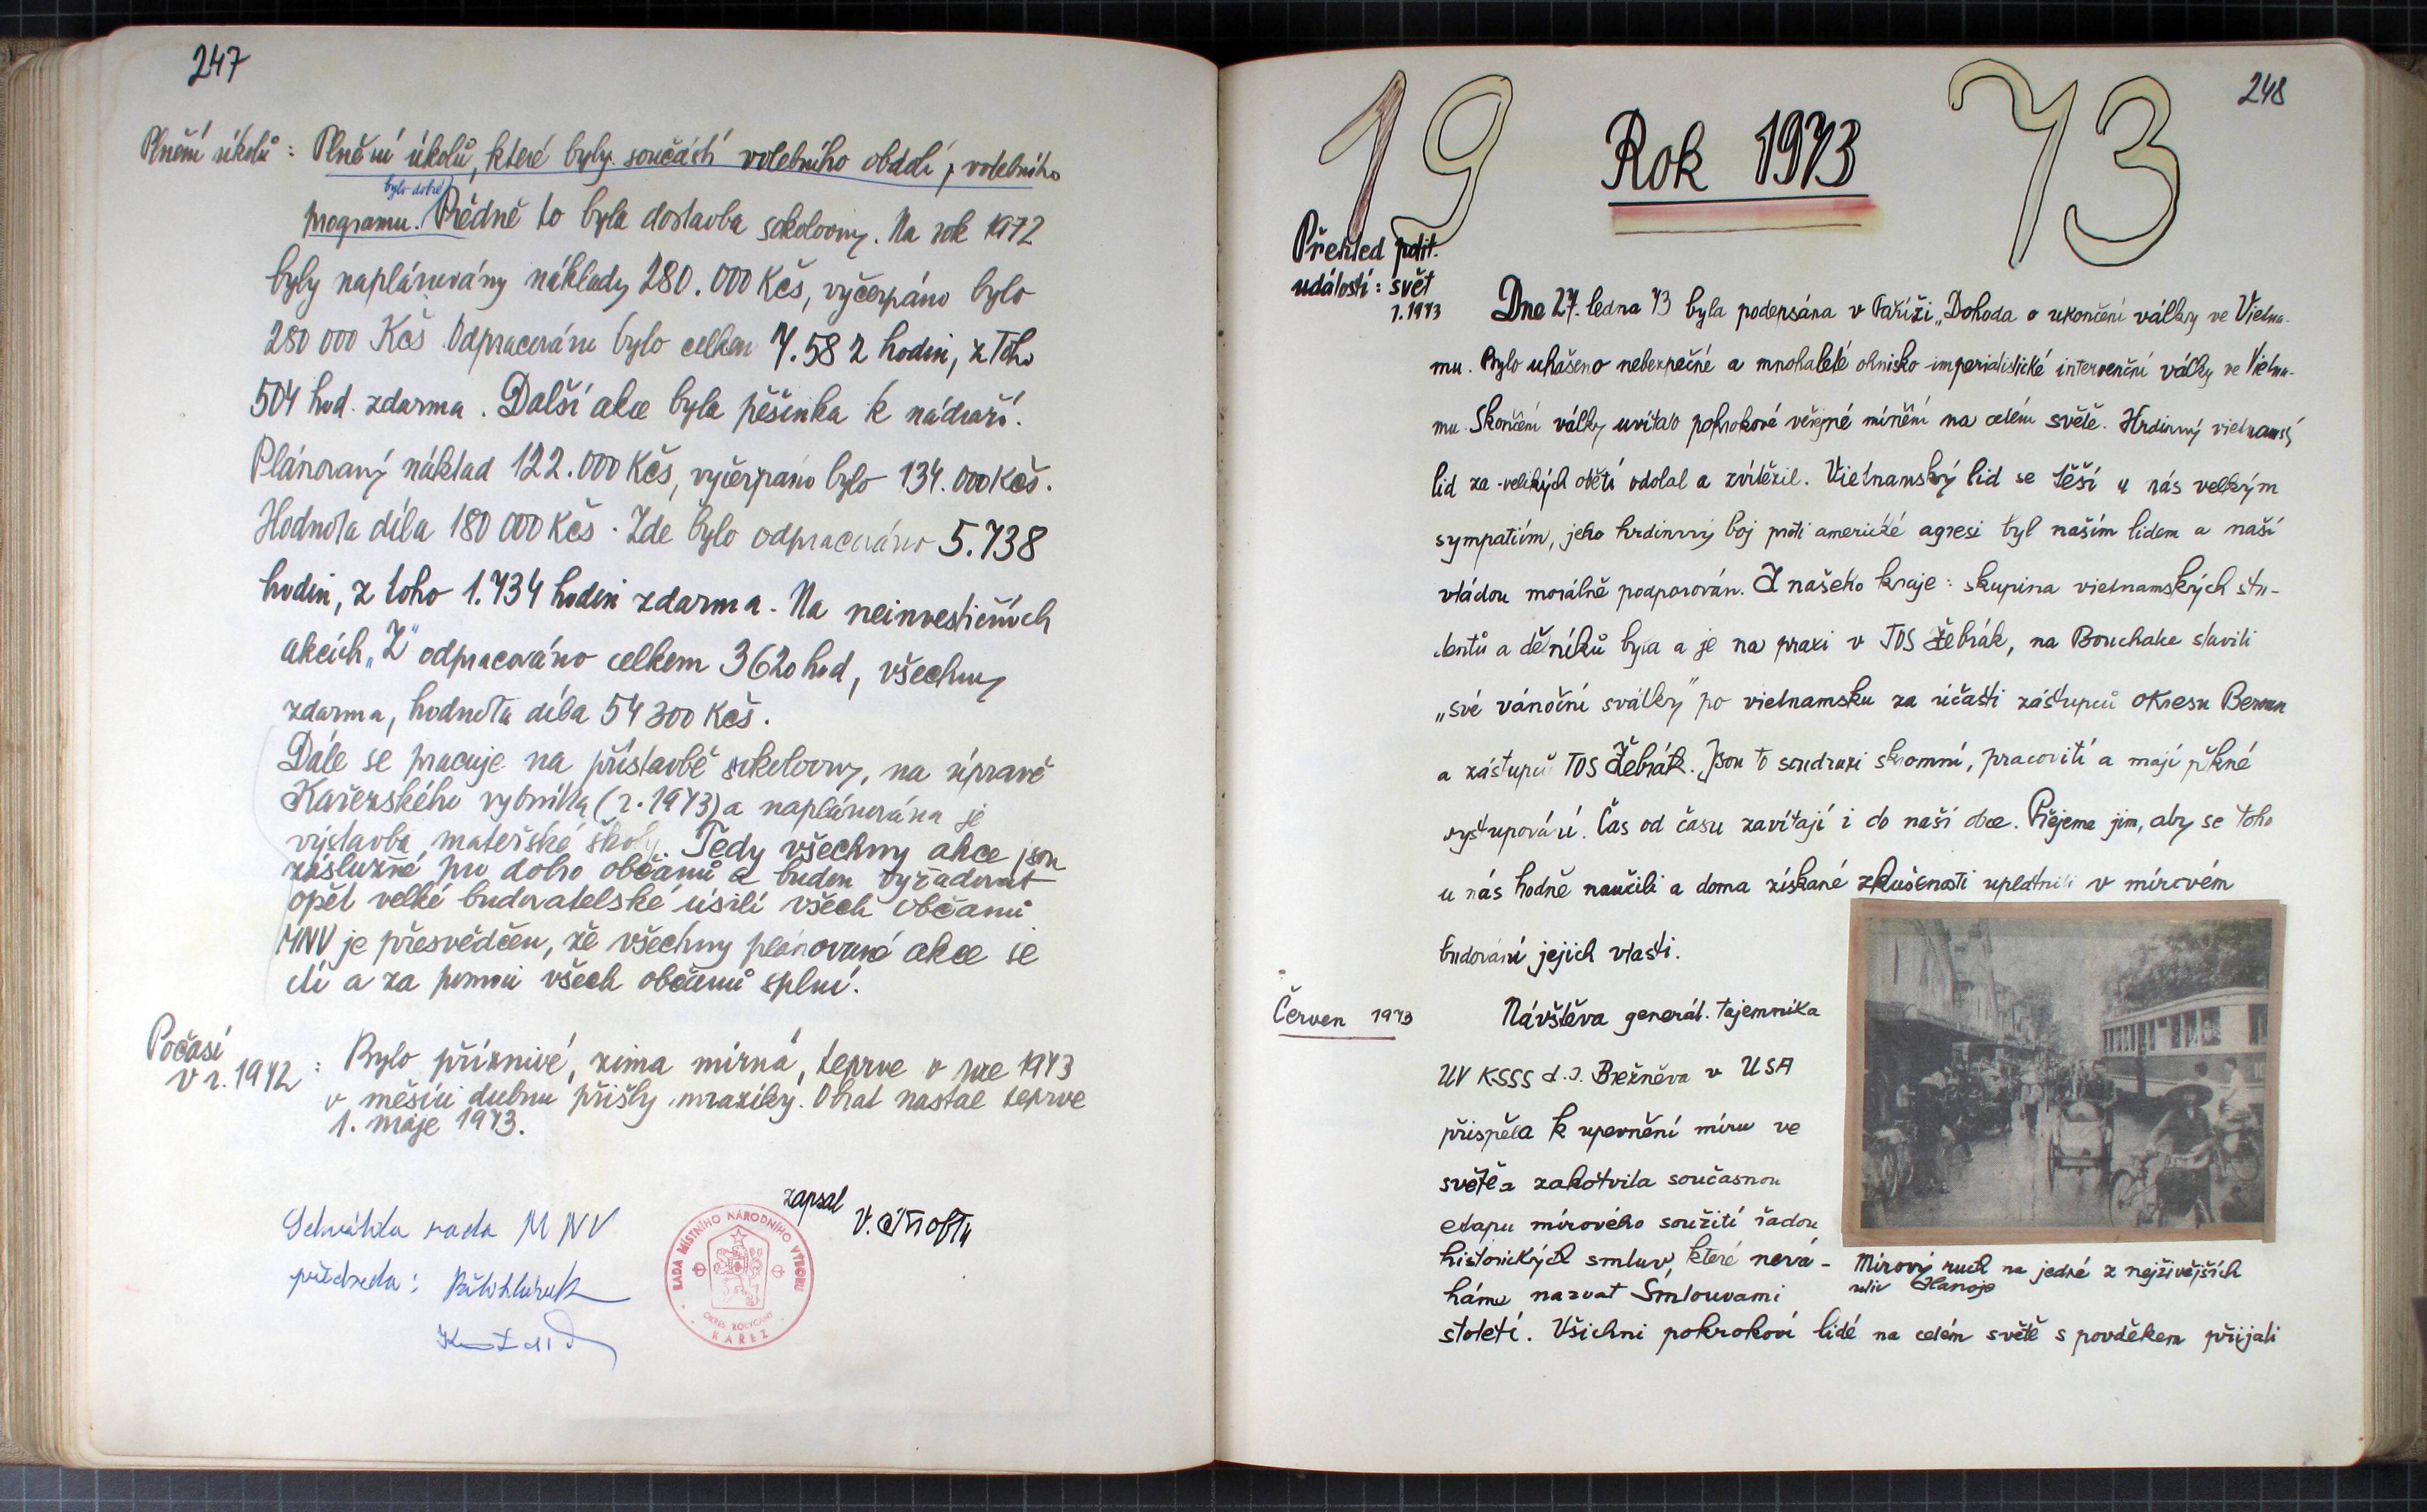 247
Plnění úkolů : Plnění úkolů, které byly součástí volebního období, volebního
bylo dobré
programu. Předně to byla dostavba sokolovny. Na rok 1972
byly naplánovány náklady 280.000 Kčs, vyčerpáno bylo
280 000 Kčs Odpracováno bylo celkem 7.582 hodin, z toho
504 hod. zdarma. Další akce byla pěšinka k nádraží.
Plánovaný náklad 122.000 Kčs, vyčerpáno bylo 134.000 Kčs.
Hodnota díla 180 000 Kčs. Zde bylo odpracováno 5.738
hodin, z toho 1.734 hodin zdarma. Na neinvestičních
akcích „Z" odpracováno celkem 3620 hod, všechny
zdarma, hodnota díla 54 300 Kčs.
Dále se pracuje na přístavbě sokolovny, na úpravě
Kařezského rybníka (r. 1973) a naplánována je
výstavba mateřské školy. Tedy všechny akce jsou
záslužné pro dobro občanů a budou vyžadovat
opět velké budovatelské úsilí všech občanů
MNV je přesvědčen, že všechny plánované akce se
dí a za pomoci všech občanů splní.
Počasí
v r. 1972 : Bylo příznivé, zima mírná, teprve v roce 1973
v měsíci dubnu přišly mrazíky. Obrat nastal teprve
1. máje 1973.
zapsal
Schválila rada MNV
předseda:
RADA MÍSTNÍHO NÁRODNÍHO VÝBORU
OKRES ROKYCANY
KAŘEZ
248
19 73
Rok 1973
Přehled polit.
událostí: svět
1.1973
Dne 27. ledna 73 byla podepsána v Paříži „Dohoda o ukončení války ve Vietna-
mu. Bylo uhašeno nebezpečné a mnohaleté ohnisko imperialistické intervenční války ve Vietna-
mu. Skončení války uvítalo pokrokové veřejné mínění na celém světě. Hrdinný vietnamský
lid za velikých obětí odolal a zvítězil. Vietnamský lid se těší u nás velkým
sympatiím, jeho hrdinný boj proti americké agresi byl naším lidem a naší
vládou morálně podporován. Z našeho kraje: skupina vietnamských stu-
dentů a dělníků byla a je na praxi v TOS Žebrák, na Bouchalce slavili
„své vánoční svátky" po vietnamsku za účasti zástupců okresu Beroun
a zástupců TOS Žebrák. Jsou to soudruzi skromní, pracovití a mají pěkné
vystupování. Čas od času zavítají i do naší obce. Přejeme jim, aby se toho
u nás hodně naučili a doma získané zkušenosti uplatnili v mírovém
budování jejich vlasti.
Červen 1973 Návštěva generál. tajemníka
ÚV KSSS L.I. Brežněva v USA
přispěla k upevnění míru ve
světě a zakotvila současnou
etapu mírového soužití řadou
historických smluv, které nevá-
háme nazvat Smlouvami
století. Všichni pokrokoví lidé na celém světě s povděkem přijali
Mírový ruch na jedné z nejživějších
ulic Hanoje